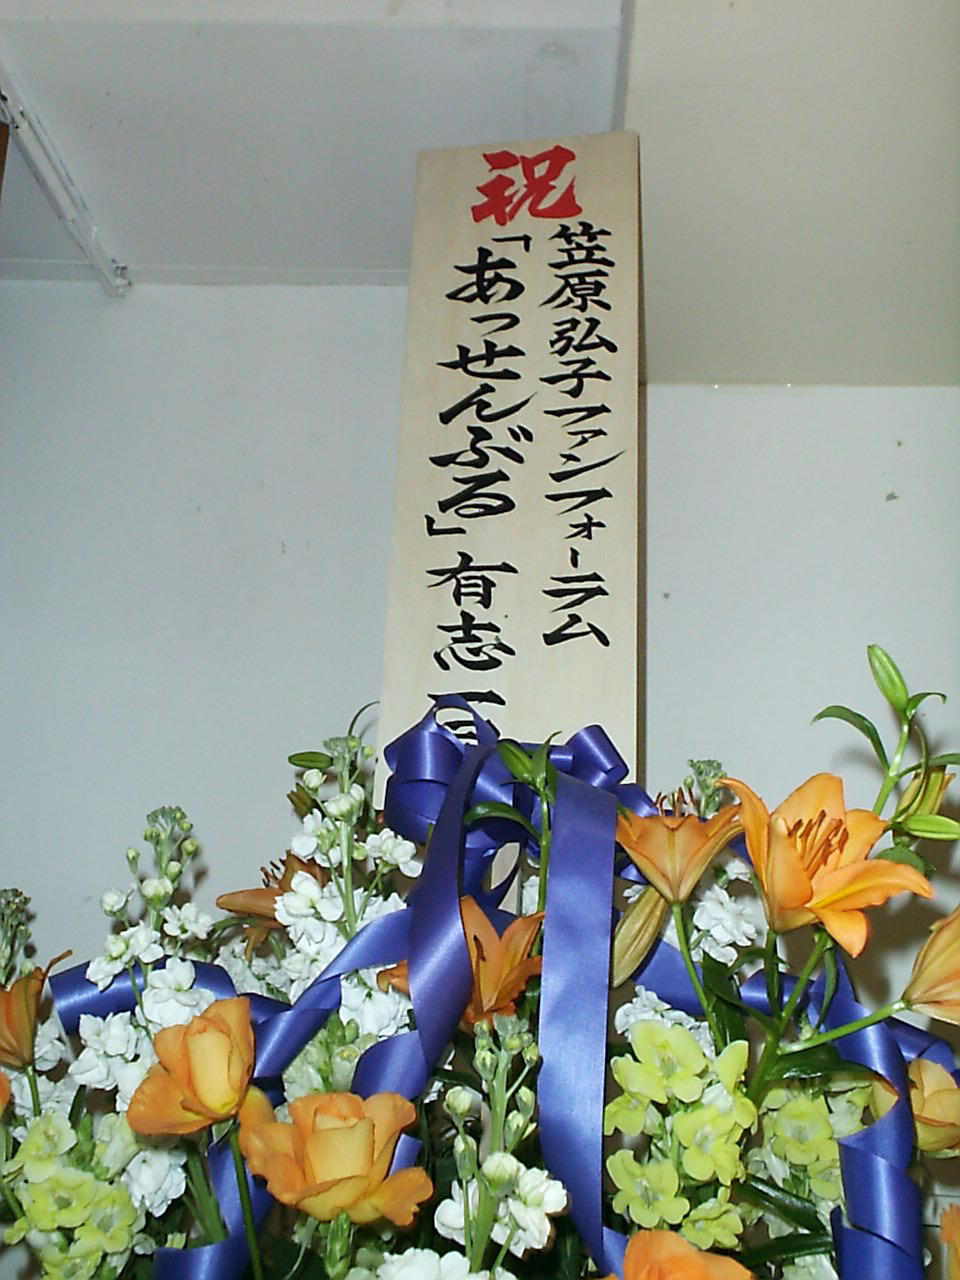 祝
笠原弘子ファンフォーラム
「あっせんぶる」有志一同